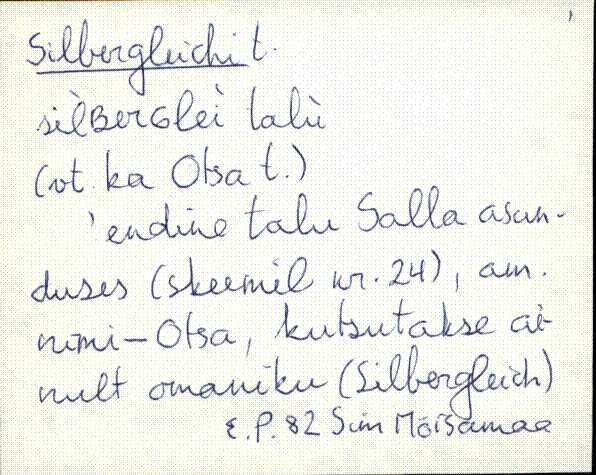 Silbergleichi t.
sìlBerGlèi talù
(vt. ka Otsa t.)
'endine talu Salla asun-
duses (skeemil nr. 24), am.
nimi - Otsa, kutsutakse ai-
nult omaniku (Silbergleich)
E.P. 82 Sim Mõisamaa